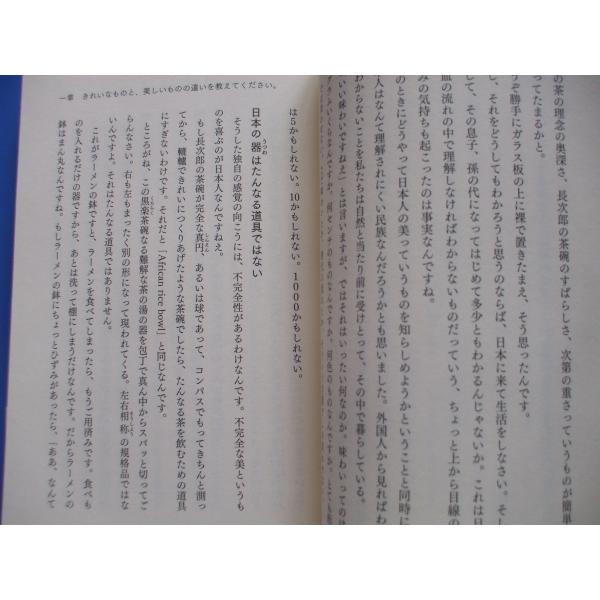 の茶の理念の奥深さ、長次郎の茶碗のすばらしさ、次第の重さっていうものが簡単
ってたまるかと。
うぞ勝手にガラス板の上に裸で置きたまえ、そう思ったんです。
し、それをどうしてもわかろうと思うのならば、日本に来て生活をしなさい。そし
て、その息子、孫の代になってはじめて多少ともわかるんじゃないか。これは日
血の流れの中で理解しなければわからないものだっていう、ちょっと上から目線の
みの気持ちも起こったのは事実なんですね。
のときにどうやって日本人の美っていうものを知らしめようかということと同時に
人はなんて理解されにくい民族なんだろうかとも思いました。外国人から見ればわ
わからないことを私たちは自然と当たり前に受けとって、その中で暮らしている。
い味わいですねえ」とは言いますが、ではそれはいったい何なのか。味わいってのは
一章　きれいなものと、美しいものの違いを教えてください。
は5かもしれない。10かもしれない。1000かもしれない。
日本の器はたんなる道具ではない
そうした独自の感覚の向こうには、不完全性があるわけなんです。不完全な美というも
のを喜ぶのが日本人なんですねえ。
もし長次郎の茶碗が完全な真円、あるいは球であって、コンパスでもってきちんと測っ
てから、轆轤できれいにつくりあげたような茶碗でしたら、たんなる茶を飲むための道具
にすぎないわけです。それだと「African rice bowl」と同じなんです。
ところがね、この黒楽茶碗なる難解な茶の湯の器を包丁で真ん中からスパッと切ってご
らんなさい。右も左もまったく別の形になって現われてくる。左右相称の規格品ではな
いんですよ。それはたんなる道具ではありません。
これがラーメンの鉢ですと、ラーメンを食べてしまったら、もうご用済みです。食べも
のを入れるだけの器ですから、あとは洗って棚にしまうだけなんです。だからラーメンの
鉢はまん丸なんですね。もしラーメンの鉢にちょっとひずみがあったら、「ああ、なんて